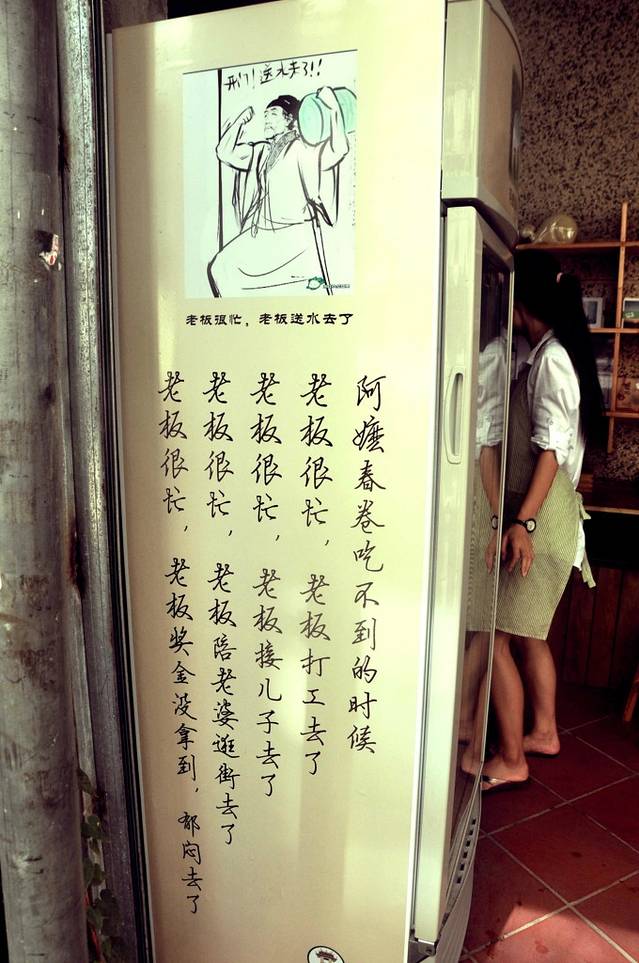 送水来了!!
老板很忙，老板送水去了
阿嬷春卷吃不到的时候
老板很忙，老板打工去了
老板很忙，老板接儿子去了
老板很忙，老板陪老婆逛街去了
老板很忙，老板奖金没拿到，郁闷去了